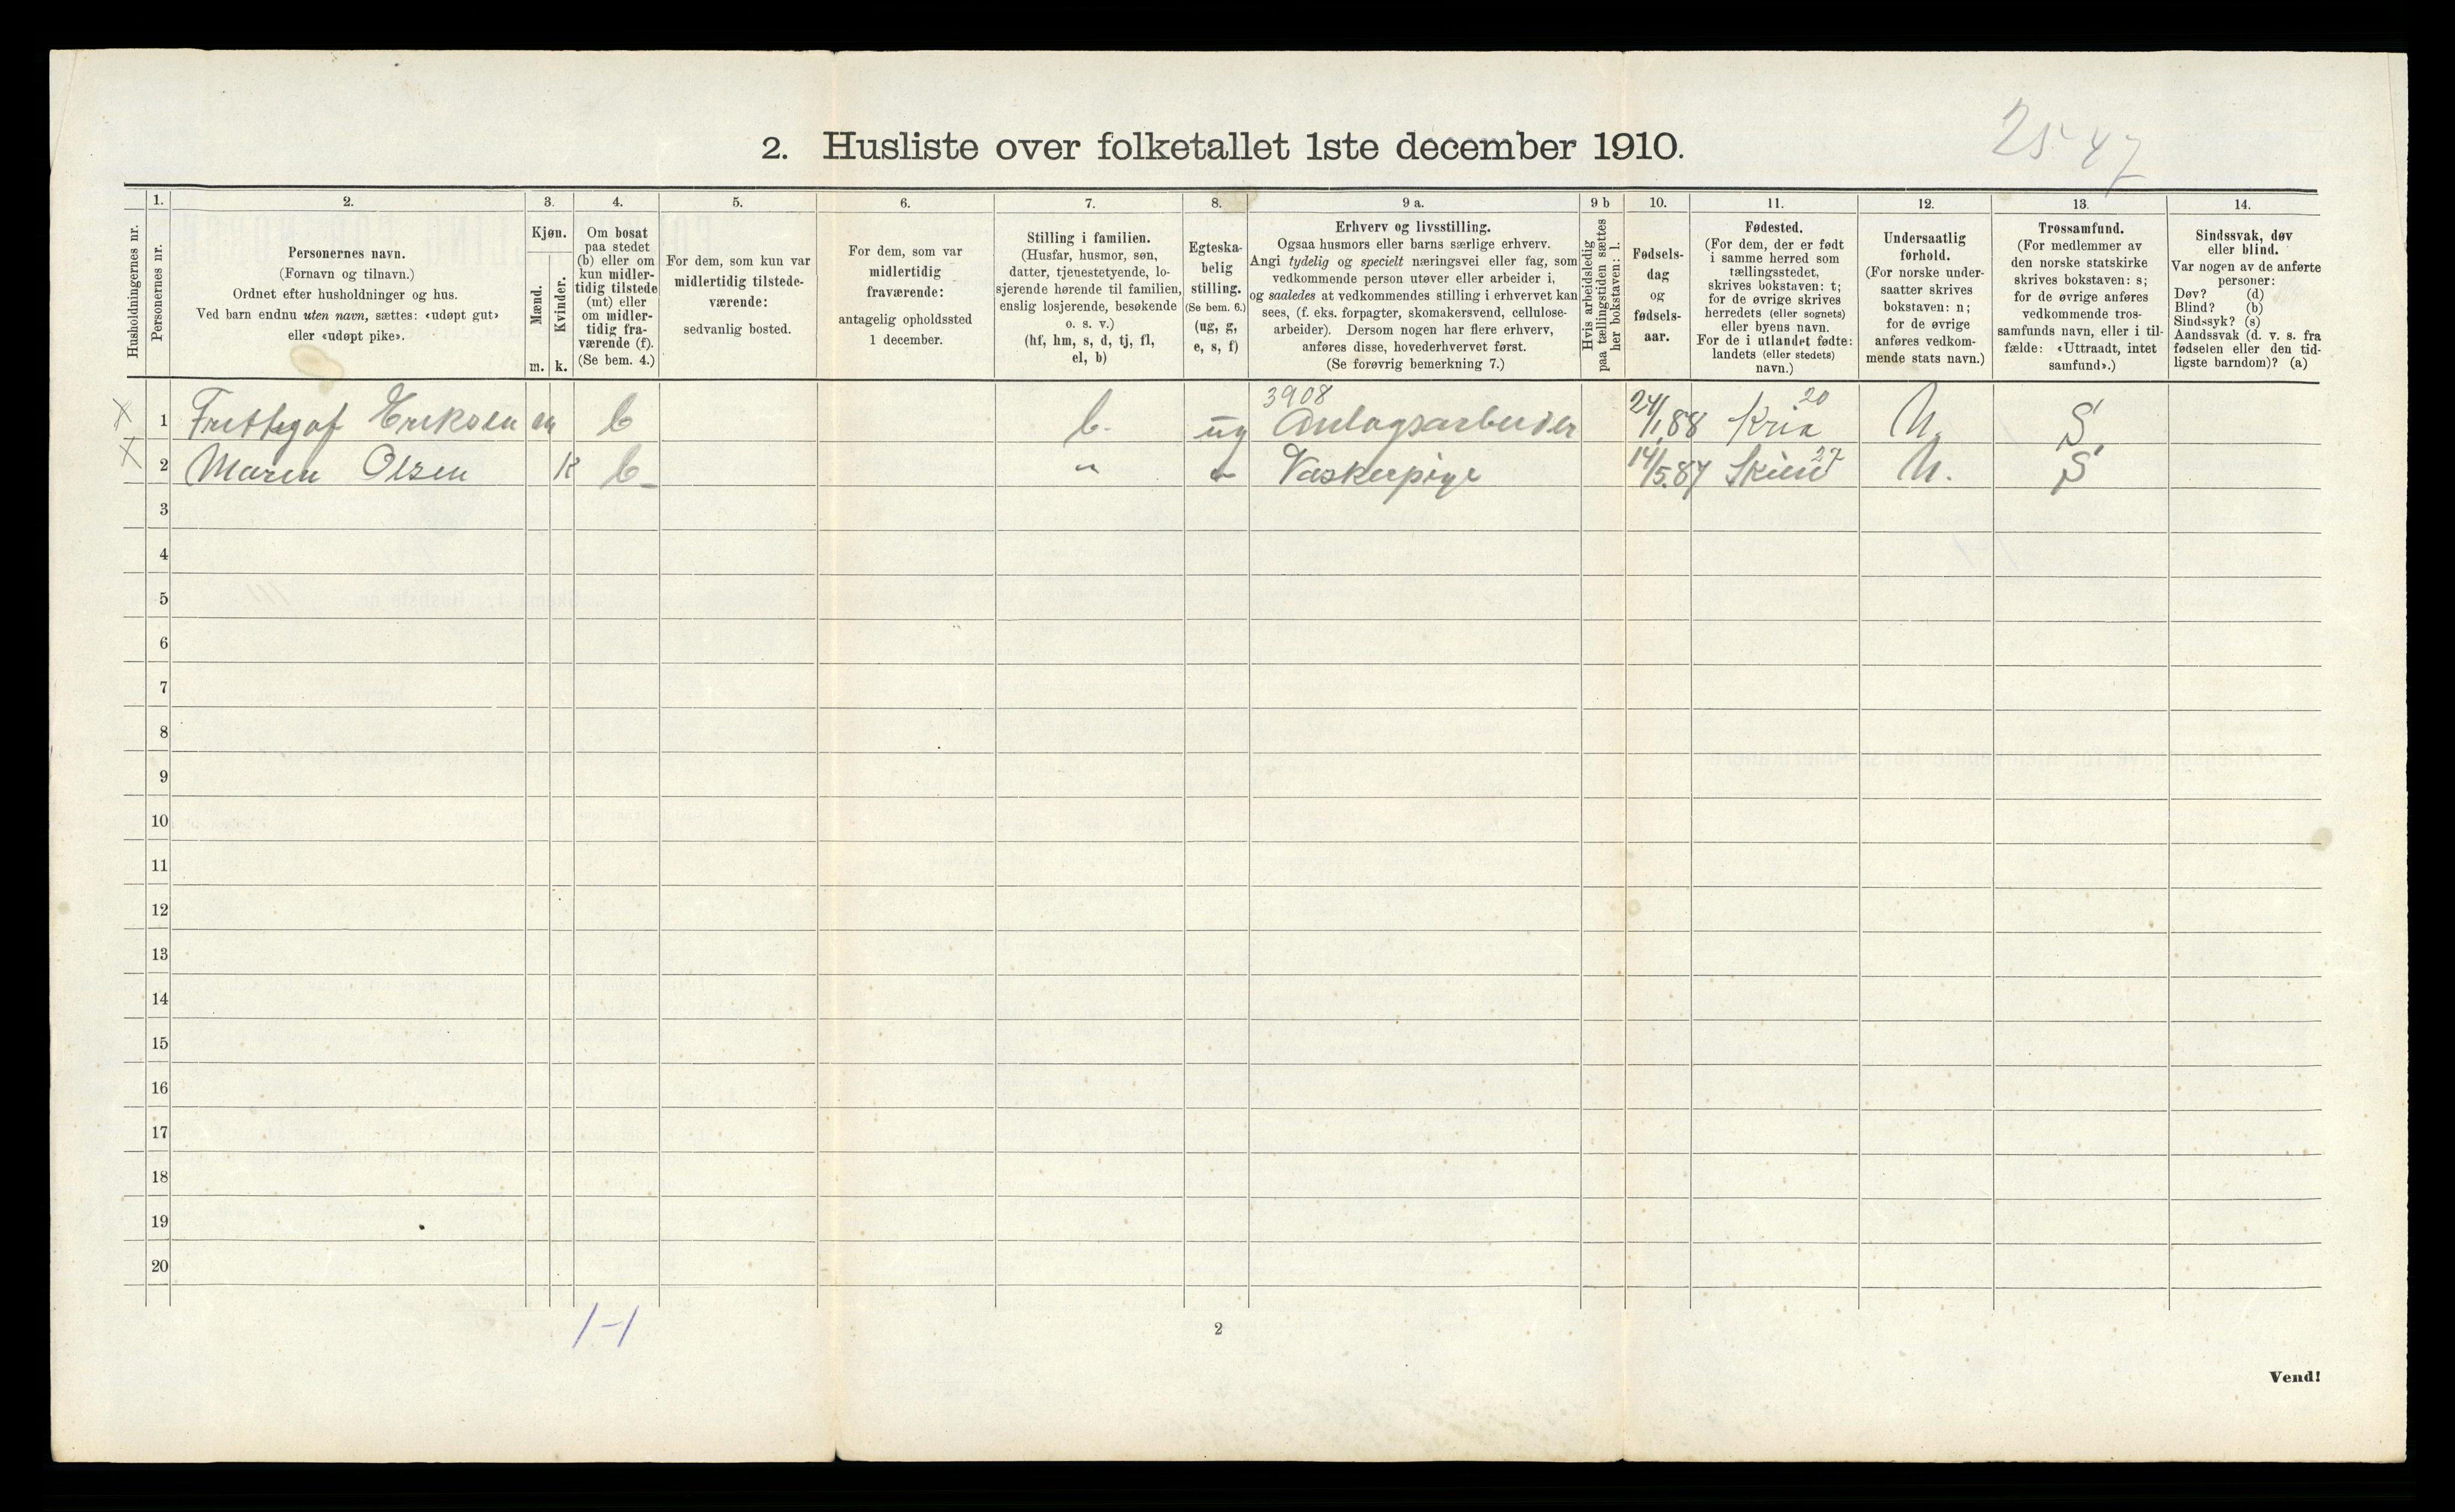 2547
2. Husliste over folketallet 1ste december 1910.
Husholdningernes nr.
1.
Personernes nr.
2.
Personernes navn.
(Fornavn og tilnavn.)
Ordnet efter husholdninger og hus.
Ved barn endnu uten navn, sættes: «udøpt gut»
eller «udøpt pike».
3.
Kjøn.
Mænd.
m.
Kvinder.
k.
4.
Om bosat
paa stedet
(b) eller om
kun midler-
tidig tilstede
(mt) eller
om midler-
tidig fra-
værende (f).
(Se bem. 4.)
5.
For dem, som kun var
midlertidig tilstede-
værende:
sedvanlig bosted.
6.
For dem, som var
midlertidig
fraværende:
antagelig opholdssted
1 december.
7.
Stilling i familien.
(Husfar, husmor, søn,
datter, tjenestetyende, lo-
sjerende hørende til familien,
enslig losjerende, besøkende
o. s. v.)
(hf, hm, s, d, tj, fl,
el, b)
8.
Egteska-
belig
stilling.
(Se bem. 6.)
(ug, g,
e, s, f)
9 a.
Erhverv og livsstilling.
Ogsaa husmors eller barns særlige erhverv.
Angi tydelig og specielt næringsvei eller fag, som
vedkommende person utøver eller arbeider i,
og saaledes at vedkommendes stilling i erhvervet kan
sees, (f. eks. forpagter, skomakersvend, cellulose-
arbeider). Dersom nogen har flere erhverv,
anføres disse, hovederhvervet først.
(Se forøvrig bemerkning 7.)
9 b
Hvis arbeidsledig
paa tællingstiden sættes
her bokstaven: l.
10.
Fødsels-
dag
og
fødsels-
aar.
11.
Fødested.
(For dem, der er født
i samme herred som
tællingsstedet,
skrives bokstaven: t;
for de øvrige skrives
herredets (eller sognets)
eller byens navn.
For de i utlandet fødte:
landets (eller stedets)
navn.)
12.
Undersaatlig
forhold.
(For norske under-
saatter skrives
bokstaven: n;
for de øvrige
anføres vedkom-
mende stats navn.)
13.
Trossamfund.
(For medlemmer av
den norske statskirke
skrives bokstaven: s;
for de øvrige anføres
vedkommende tros-
samfunds navn, eller i til-
fælde: «Uttraadt, intet
samfund».)
14.
Sindssvak, døv
eller blind.
Var nogen av de anførte
personer:
Døv? (d)
Blind? (b)
Sindssyk? (s)
Aandssvak (d. v. s. fra
fødselen eller den tid-
ligste barndom)? (a)
3908 20
X 1 Frithgof Eriksen m b b. ug Anlagsarbeider 24/1.88 Kria N. S
27
X 2 Maren Olsen K b - " " Vaskerpige 14/5.87 Skien N. S
3
4
5
6
7
8
9
10
11
12
13
14
15
16
17
18
19
20
1-1
2
Vend!